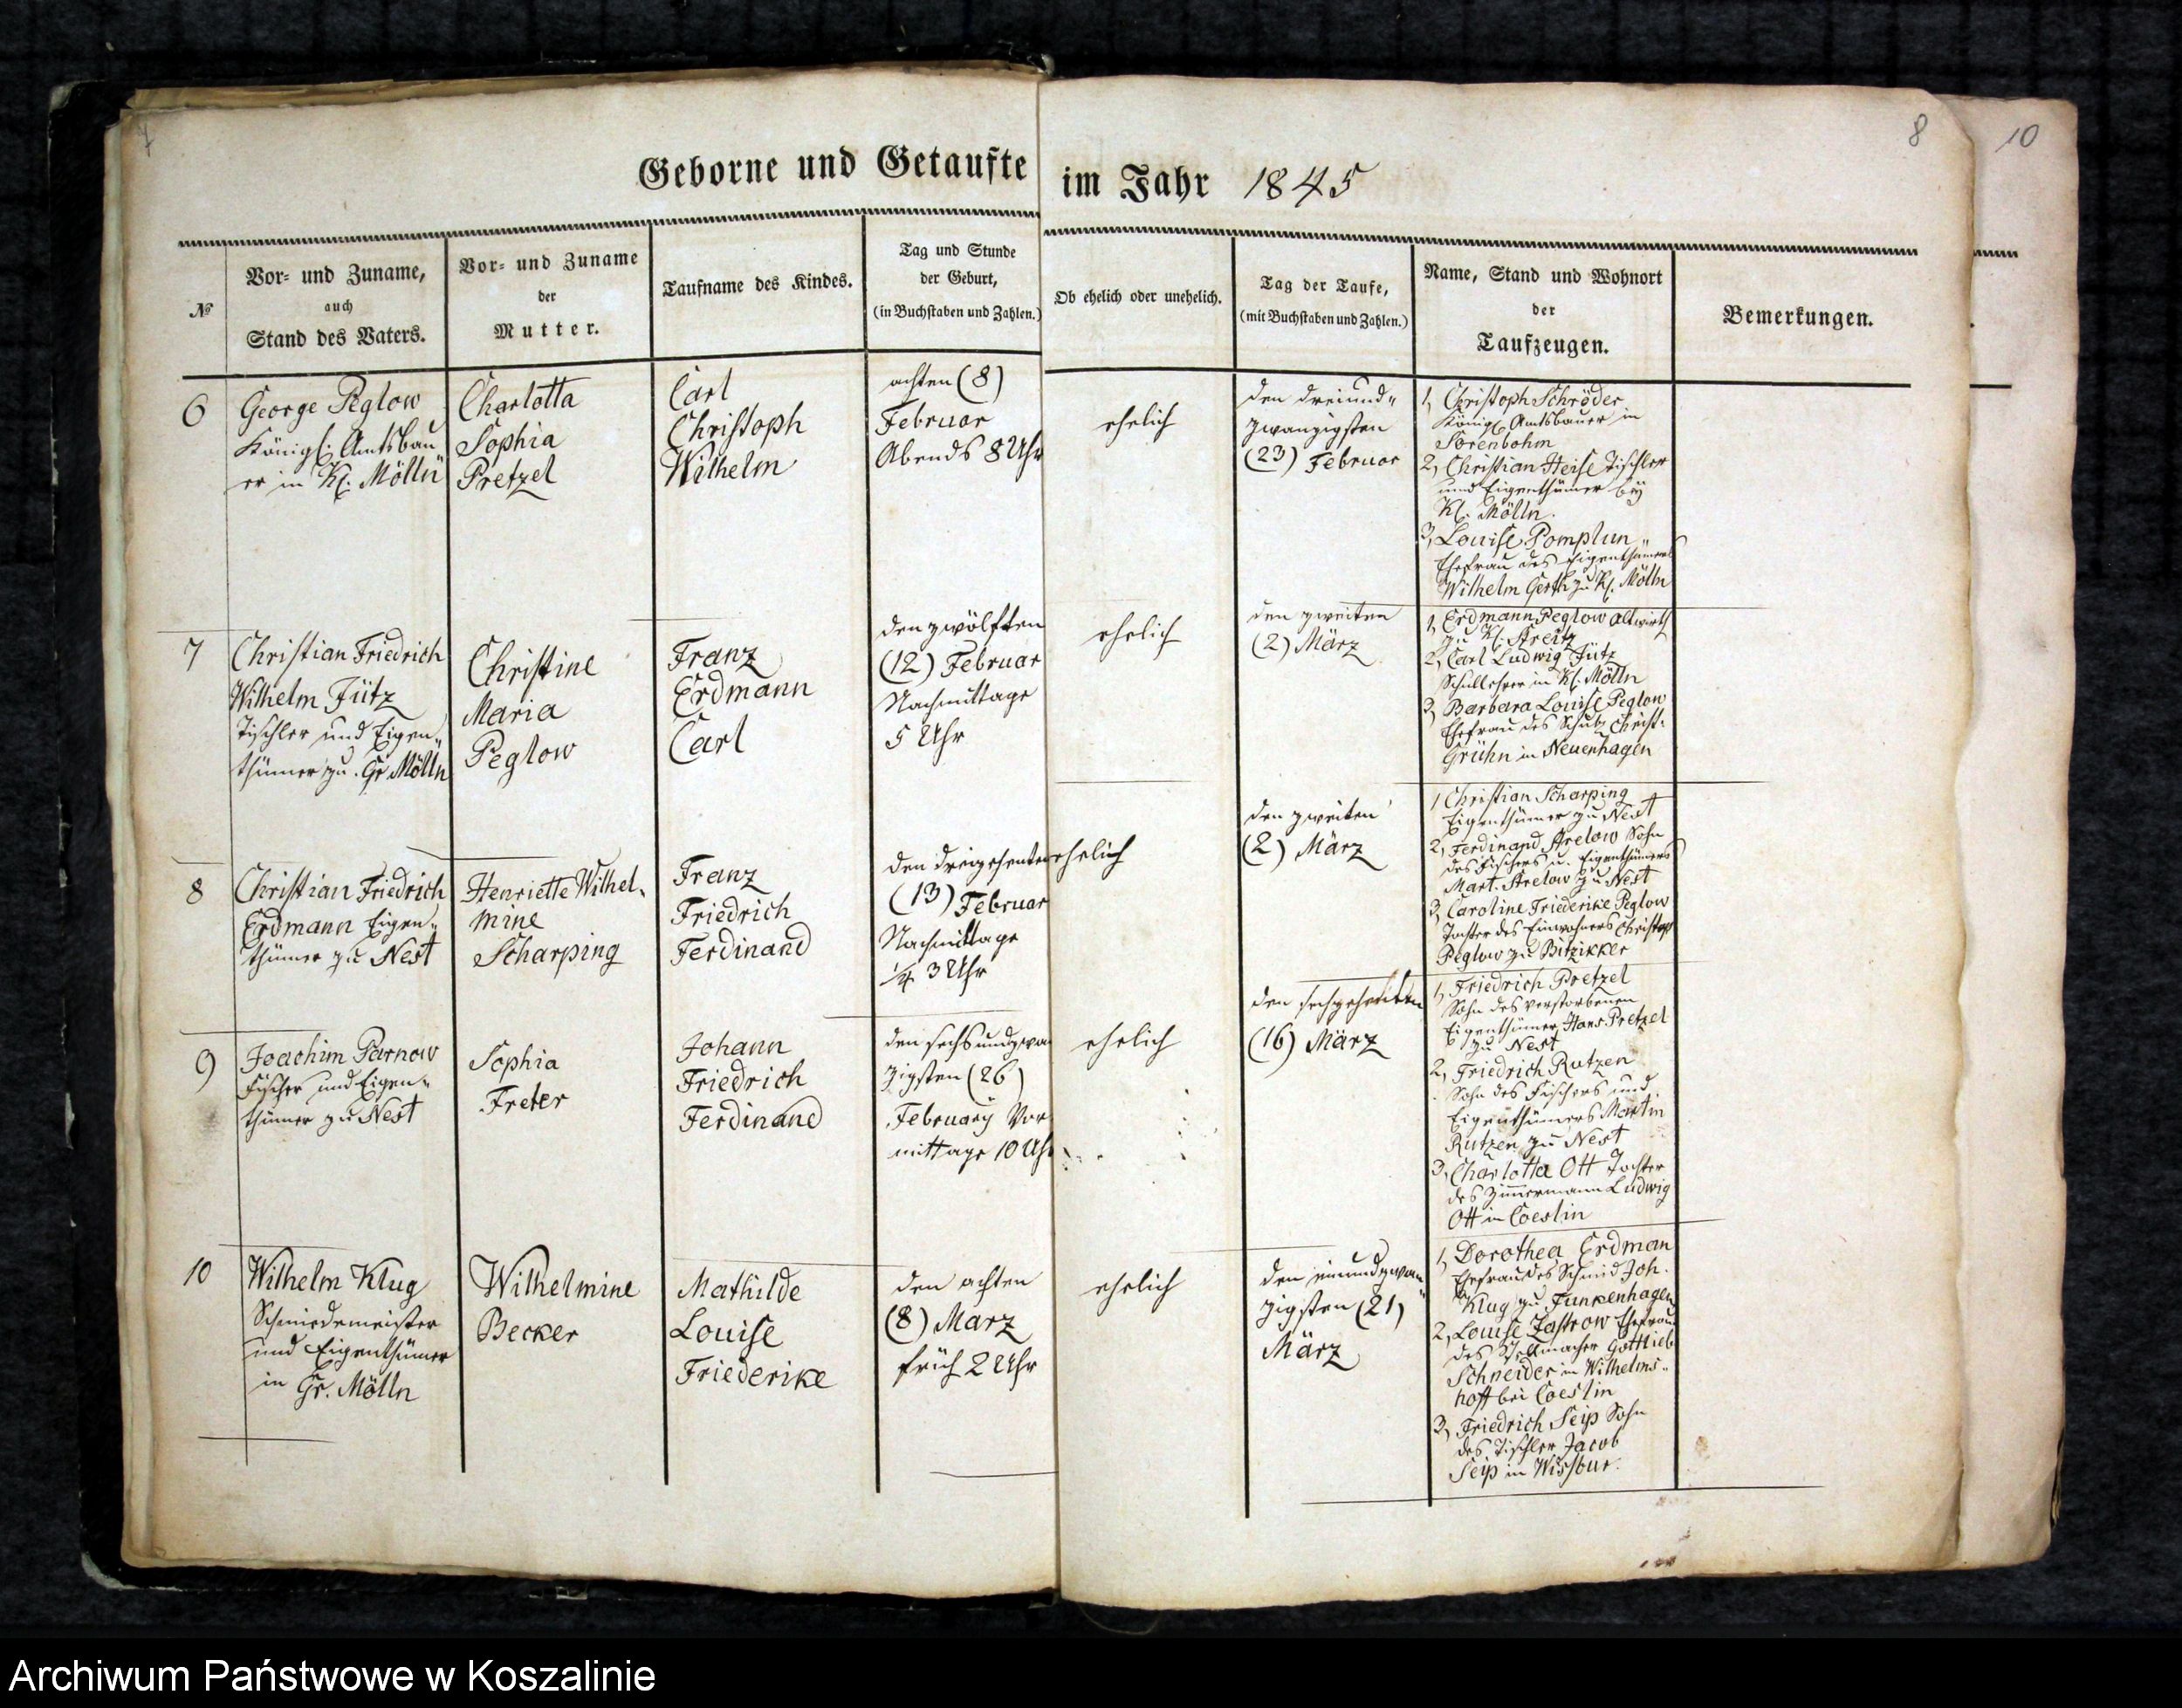 7
8
10
Geborne und Getaufte im Jahr 1845
№
Vor- und Zuname,
auch
Stand des Vaters.
Vor- und Zuname
der
Mutter.
Taufname des Kindes.
Tag und Stunde
der Geburt,
(in Buchstaben und Zahlen.)
Ob ehelich oder unehelich.
Tag der Taufe,
(mit Buchstaben und Zahlen.)
Name, Stand und Wohnort
der
Taufzeugen.
Bemerkungen.
6
George Peglow
Königl. Amtsbau
er in Kl. Mölln
Charlotta
Sophia
Pretzel
Carl
Christoph
Wilhelm
achten (8)
Februar
Abends 8 Uhr
ehelich
den dreiund-
zwanzigsten
(23) Februar
1, Christoph Schröder
Königl. Amtsbauer in
Sorenbohm
2, Christian Heise Tischler
und Eigenthümer bey
Kl. Mölln.
3, Louise Pomplun
Ehefrau des Eigenthümers
Wilhelm Gerth zu Kl. Mölln
7
Christian Friedrich
Wilhelm Jütz
Tischler und Eigen-
thümer zu Gr Mölln
Christine
Maria
Peglow
Franz
Erdmann
Carl
den zwölften
(12) Februar
Nachmittags
5 Uhr
ehelich
den zweiten
(2) März
1, Erdmann Peglow Altwirth
zu Kl. Streitz
2, Carl Ludwig Jütz
Schullehrer in Kl. Mölln
3, Barbara Louise Peglow
Ehefrau des Schulz Christ:
Grühn in Neuenhagen
8
Christian Friedrich
Erdmann Eigen-
thümer zu Nest
Henriette Wilhel-
mine
Scharping
Franz
Friedrich
Ferdinand
den dreizehnten
(13) Februar
Nachmittags
1/4 3 Uhr
ehelich
den zweiten
(2) März
1 Christian Scharping
Eigenthümer zu Nest
2, Ferdinand Strelow Sohn
des Fischers u. Eigenthümers
Mart. Strelow zu Nest
3, Caroline Friederike Peglow
Tochter des Einwohners Christoph
Peglow zu Bitzikker
9
Joachim Parnow
Fischer und Eigen-
thümer zu Nest
Sophia
Freter
Johann
Friedrich
Ferdinand
den sechsundzwan
zigsten (26)
February Vor
mittags 10 Uhr
ehelich
den sechzehnten
(16) März
1, Friedrich Pretzel
Sohn des verstorbenen
Eigenthümer Hans Pretzel
zu Nest
2, Friedrich Rutzen
Sohn des Fischers und
Eigenthümers Martin
Rutzen zu Nest
3, Charlotta Ott Tochter
des Zimmermann Ludwig
Ott in Coeslin
10
Wilhelm Klug
Schmiedemeister
und Eigenthümer
in Gr. Mölln
Wilhelmine
Becker
Mathilde
Louise
Friederike
den achten
(8) Marz
früh 2 Uhr
ehelich
den einundzwan-
zigsten (21)
März
1, Dorothea Erdman
Ehefrau des Schmid Joh.
Klug zu Funkenhagen
2, Louise Zastrow Ehefrau
des Stellmacher Gottlieb
Schneider in Wilhelms-
hoff bei Coeslin
3, Friedrich Seip Sohn
des Tischler Jacob
Seip in Wissbur.
Archiwum Państwowe w Koszalinie